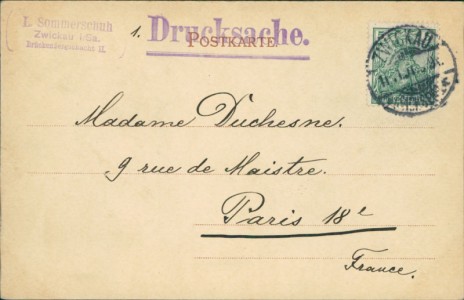 E. Sommerschuh
Zwickau i/Sa.
1. Drucksache.
POSTKARTE
ZWICKAU
Madame Duchesne.
9 rue de Maistre.
Paris 18e
France.